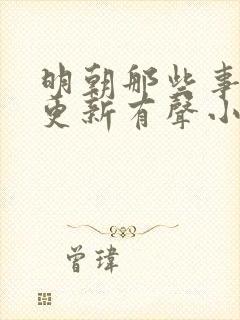 明朝那些事
更新有聲小
曾瑋